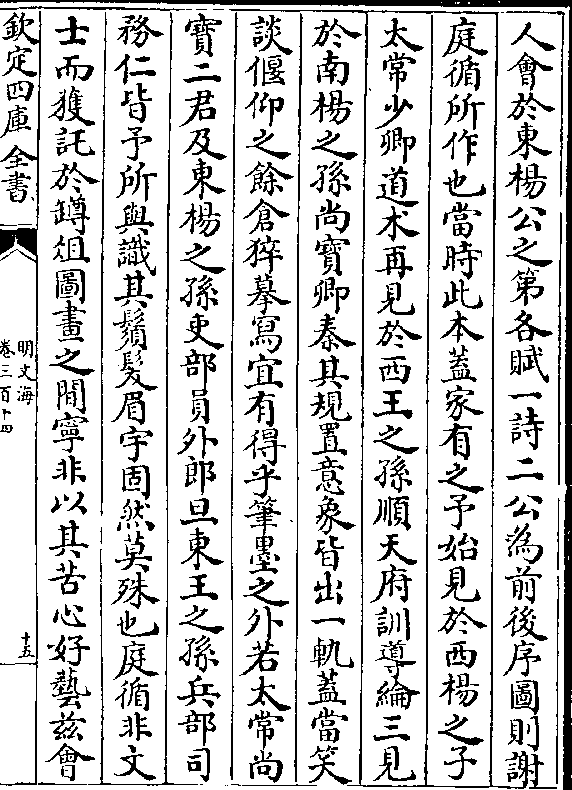 人會於東楊公之第各賦一詩二公為前後序圖則謝
庭循所作也當時此本蓋家有之予始見於西楊之子
太常少卿道术再見於西王之孫順天府訓導綸三見
於南楊之孫尚寶卿泰其規置意象皆出一軌蓋當笑
談偃仰之餘倉猝摹寫宜有得乎筆墨之外若太常尚
寶二君及東楊之孫吏部員外郎旦東王之孫兵部司
務仁皆予所與識其鬚髪眉宇固然莫殊也庭循非文
士而獲託於罇俎圖畫之間寧非以其苦心好藝兹會
欽定四庫全書
明文海
卷三百十四
十五